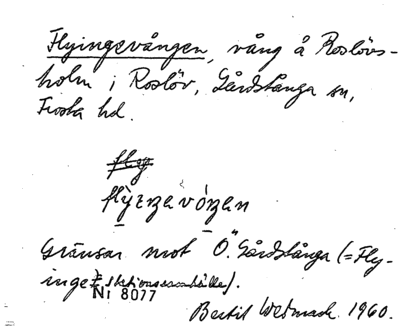 Flyingevången, vång å Roslövs-
holm i Roslöv, Gårdstånga sn,
Frosta hd.
fly
flỳŋəvóŋən
Gränsar mot Ö. Gårdstånga (= Fly-
inge stationssamhälle).
Nr 8077
Bertil Wetmark 1960.